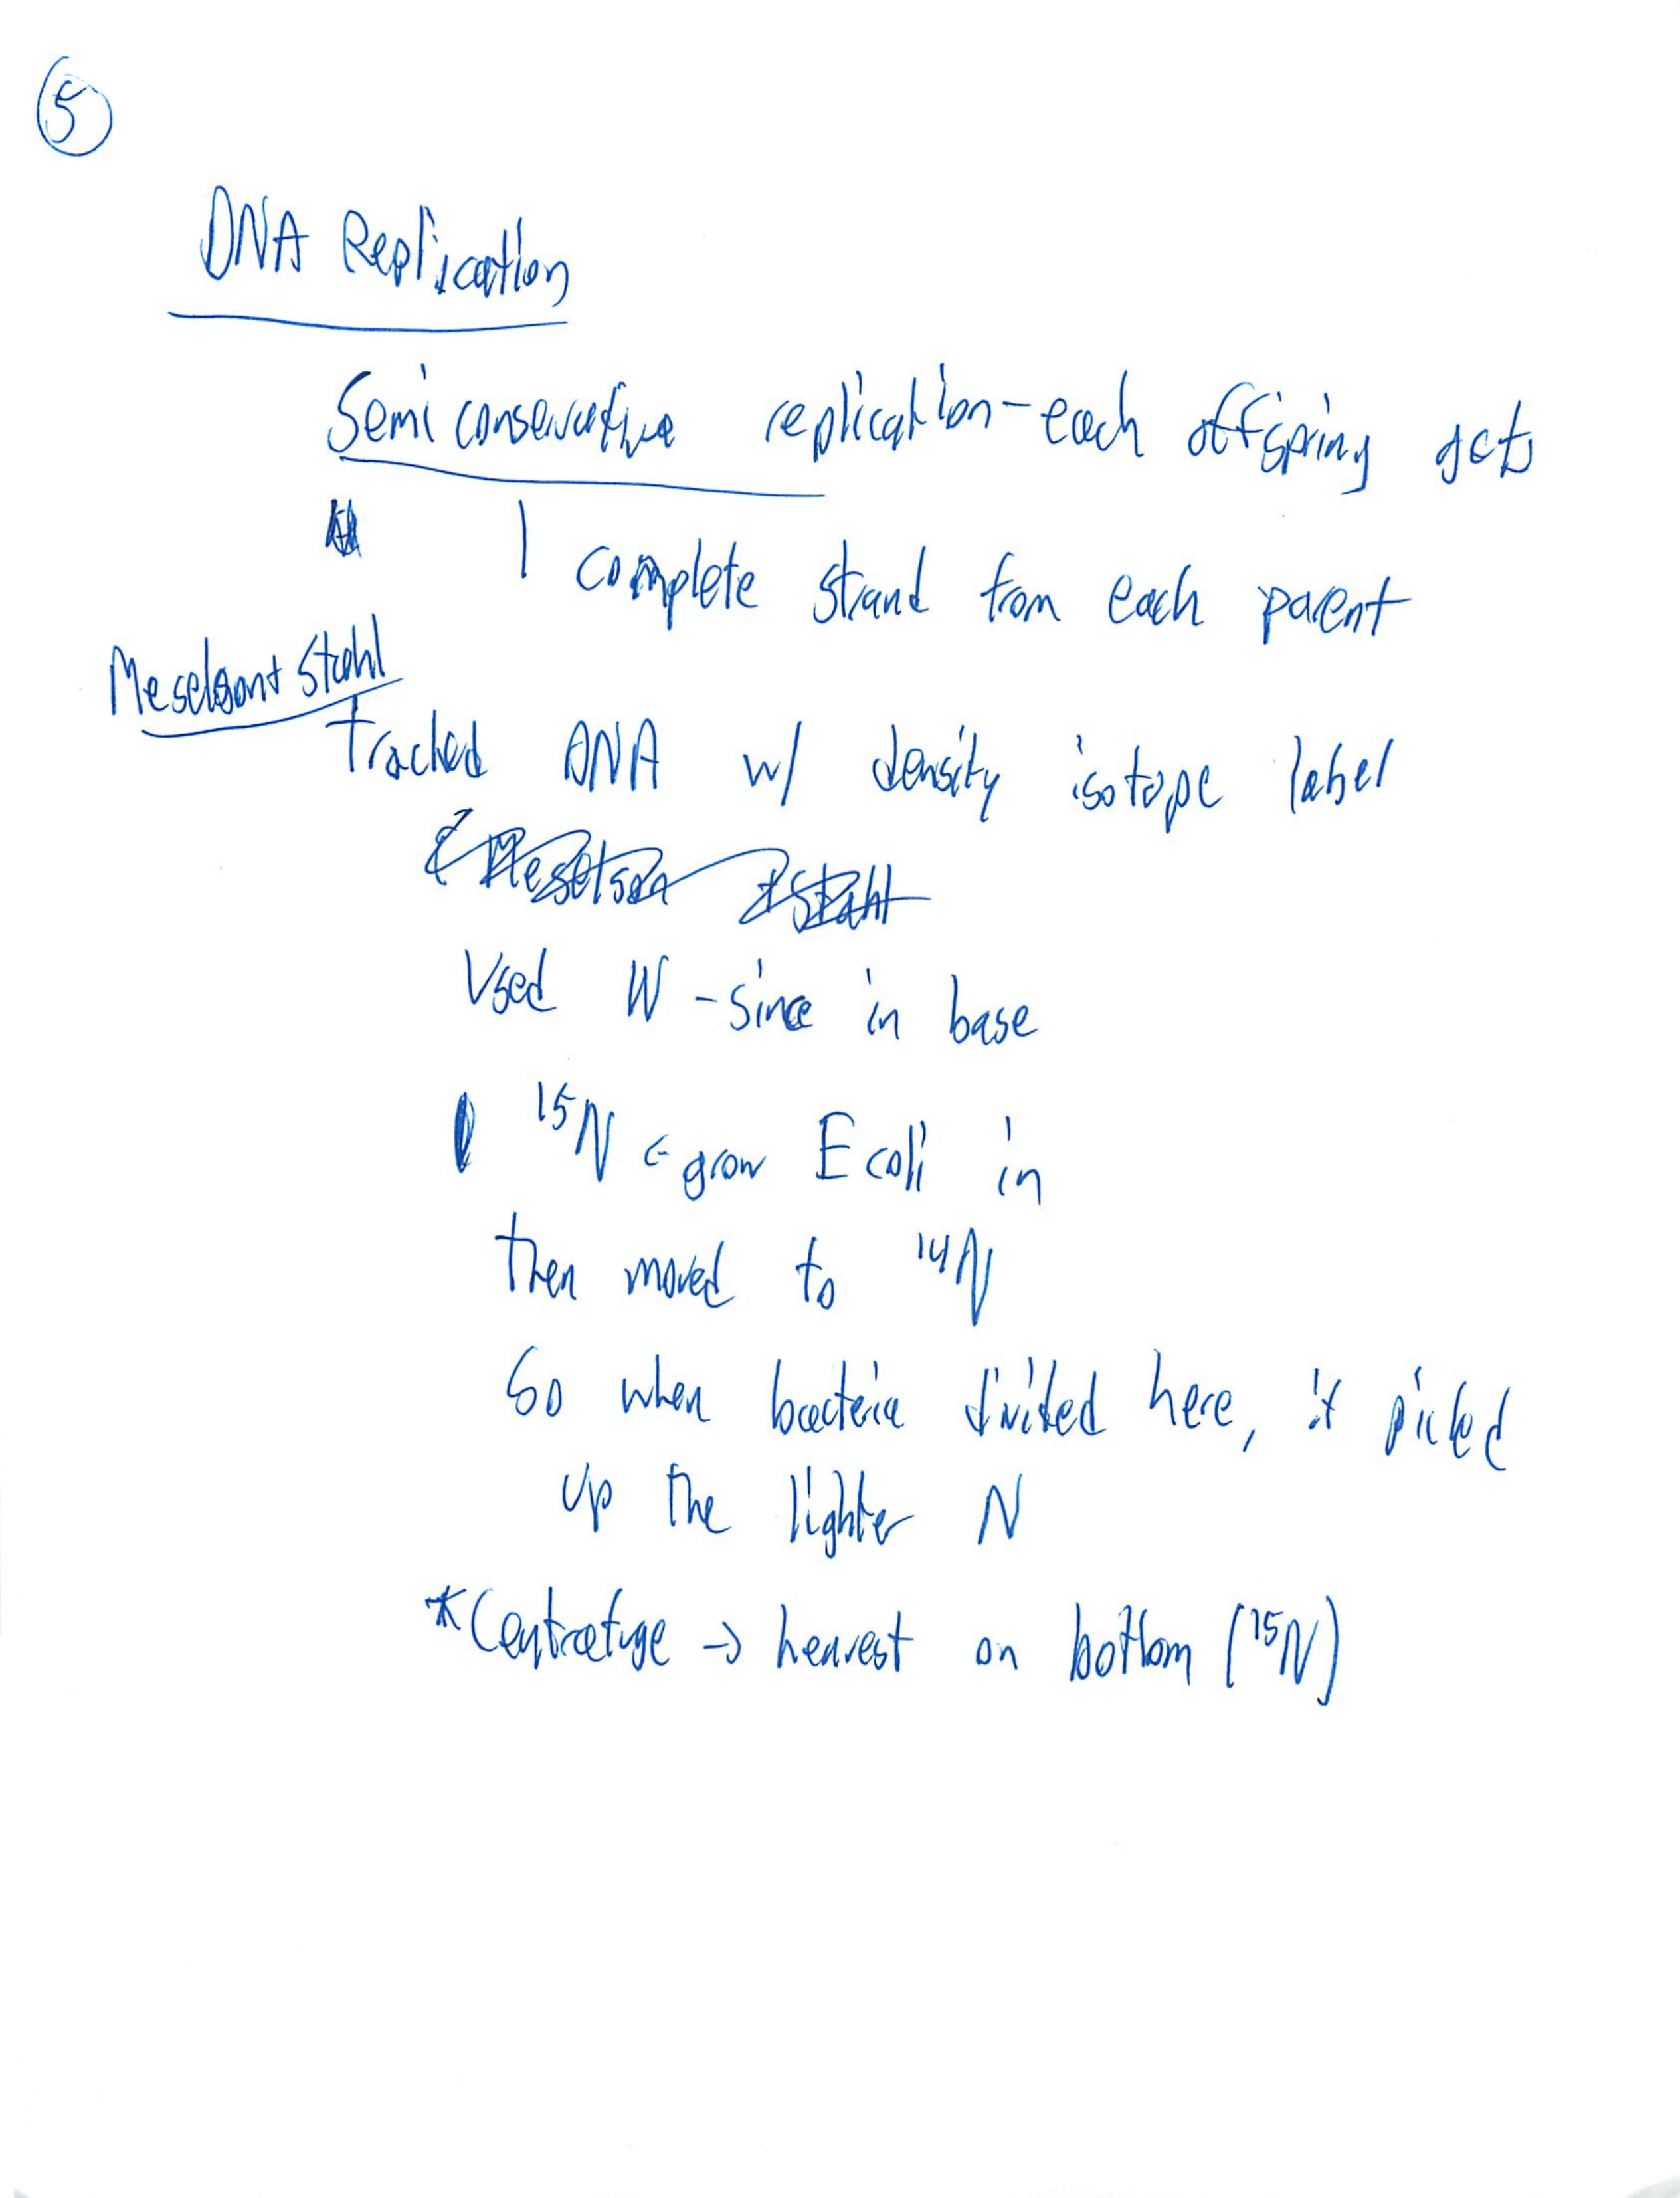 5
DNA Replication
Semiconservative replication - each offspring gets
1 complete strand from each parent
Meselson + Stahl
Tracked DNA w/ density isotope label
Meselson + Stahl
Used N - since in base
¹⁵N ← grow E coli in
then moved to ¹⁴N
So when bacteria divided here, it picked
up the lighter N
*Centrafuge → heavest on bottom (¹⁵N)